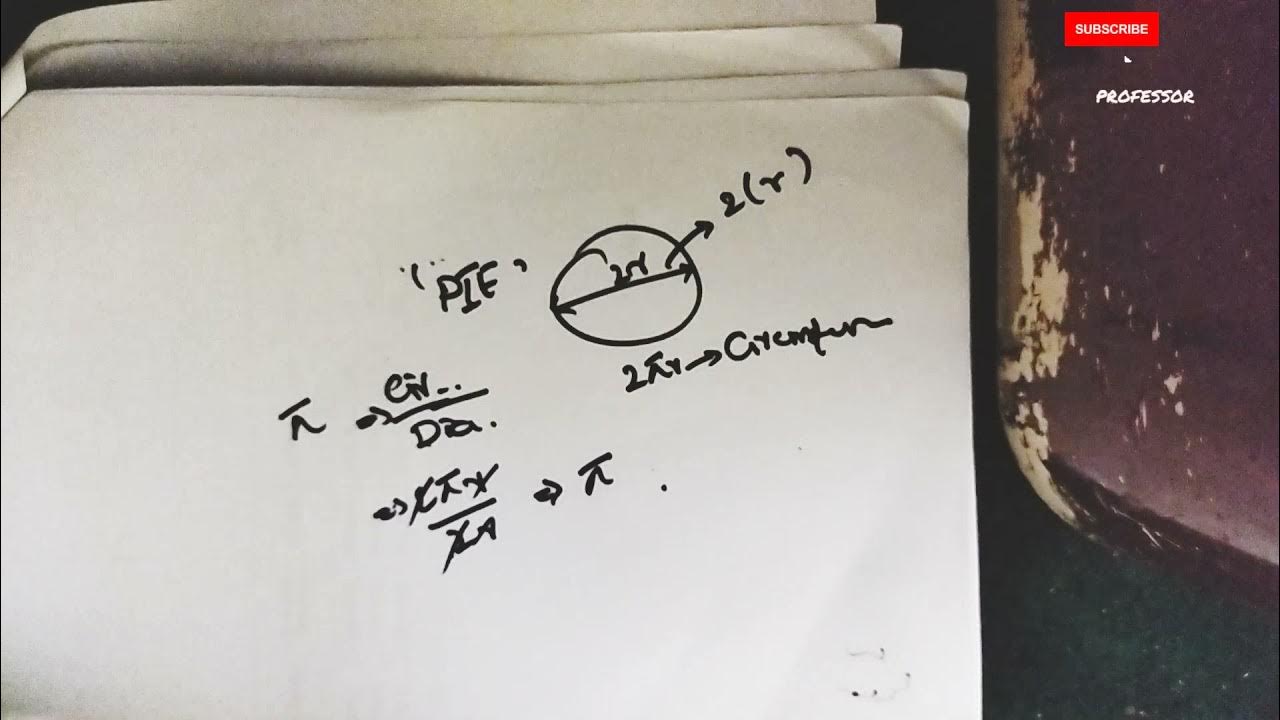 SUBSCRIBE
PROFESSOR
2(r)
"PIE"
2r
2πr → Circumfere
π ⇒ Cir.. / Dia.
⇒ 2πr / 2r ⇒ π.